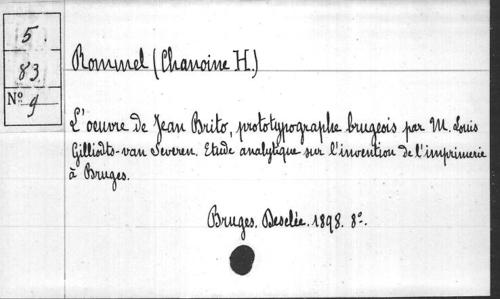 5
83
Nº 9
Rommel (Chanoine H.)
L'oeuvre de Jean Brito, prototypographe brugeois par M. Louis
Gilliodts-van Severen. Etude analytique sur l'invention de l'imprimerie
à Bruges.
Bruges. Desclée. 1898. 8º.